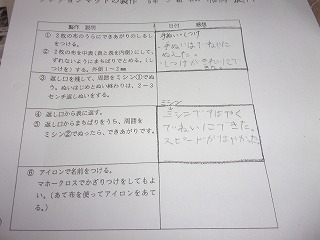 製作 説明
日付 感想
① 2枚の布のうらにできあがりのしるし
をつける。
② 2枚の布を中表(表と表を内側)にして、
ずれないようにまちばりでとめる。(し
つけをする。外側1~2mm
手ぬい・しつけ
手ぬいは
ていねいに
しつけが
③ 返し口を残して、周囲をミシン①でぬ
う。ぬいはじめとぬい終わりは、2~3
センチ返しぬいをする。
④ 返し口から表に返す。
⑤ 返し口からまちばりをうち、周囲を
ミシン②でぬったら、できあがりです。
ミシン
ミシンではやく
ていねいにできた。
スピードがはやかった。
⑥ アイロンで名前をつける。
マホークロスでかざりつけをしてもよ
い。(あて布を使ってアイロンをあて
る。)